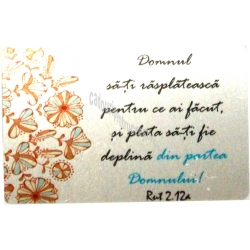 Domnul
să-ți răsplătească
pentru ce ai făcut,
și plata să-ți fie
deplină din partea
Domnului!
Rut 2.12a